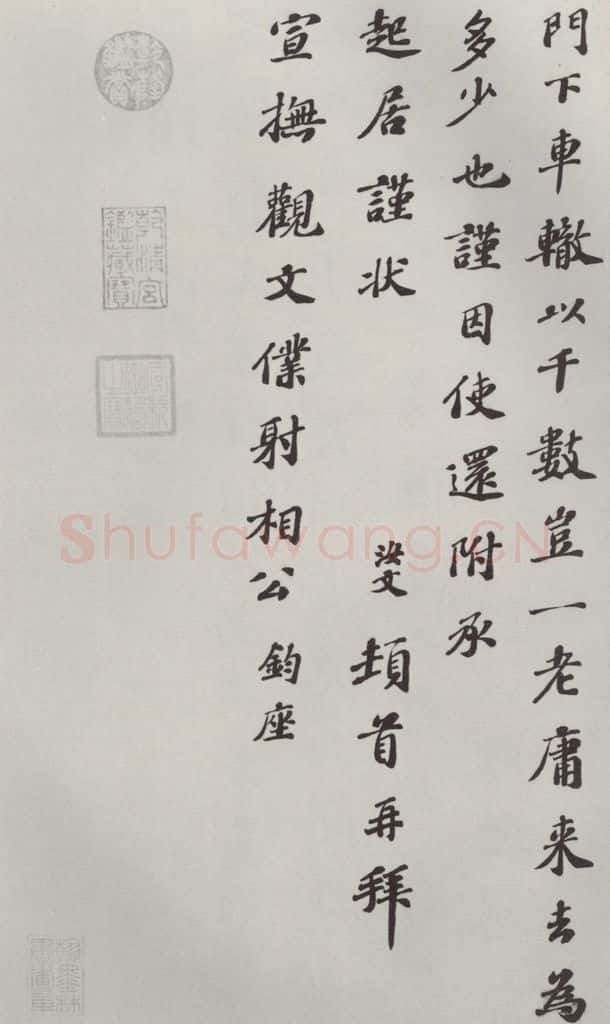 門下車轍以千數豈一老庸来去為
多少也謹因使還附承
起居謹状
汝文頓首再拜
宣撫觀文僕射相公鈞座
乾清宮鑑藏寶
Shufawang.CN